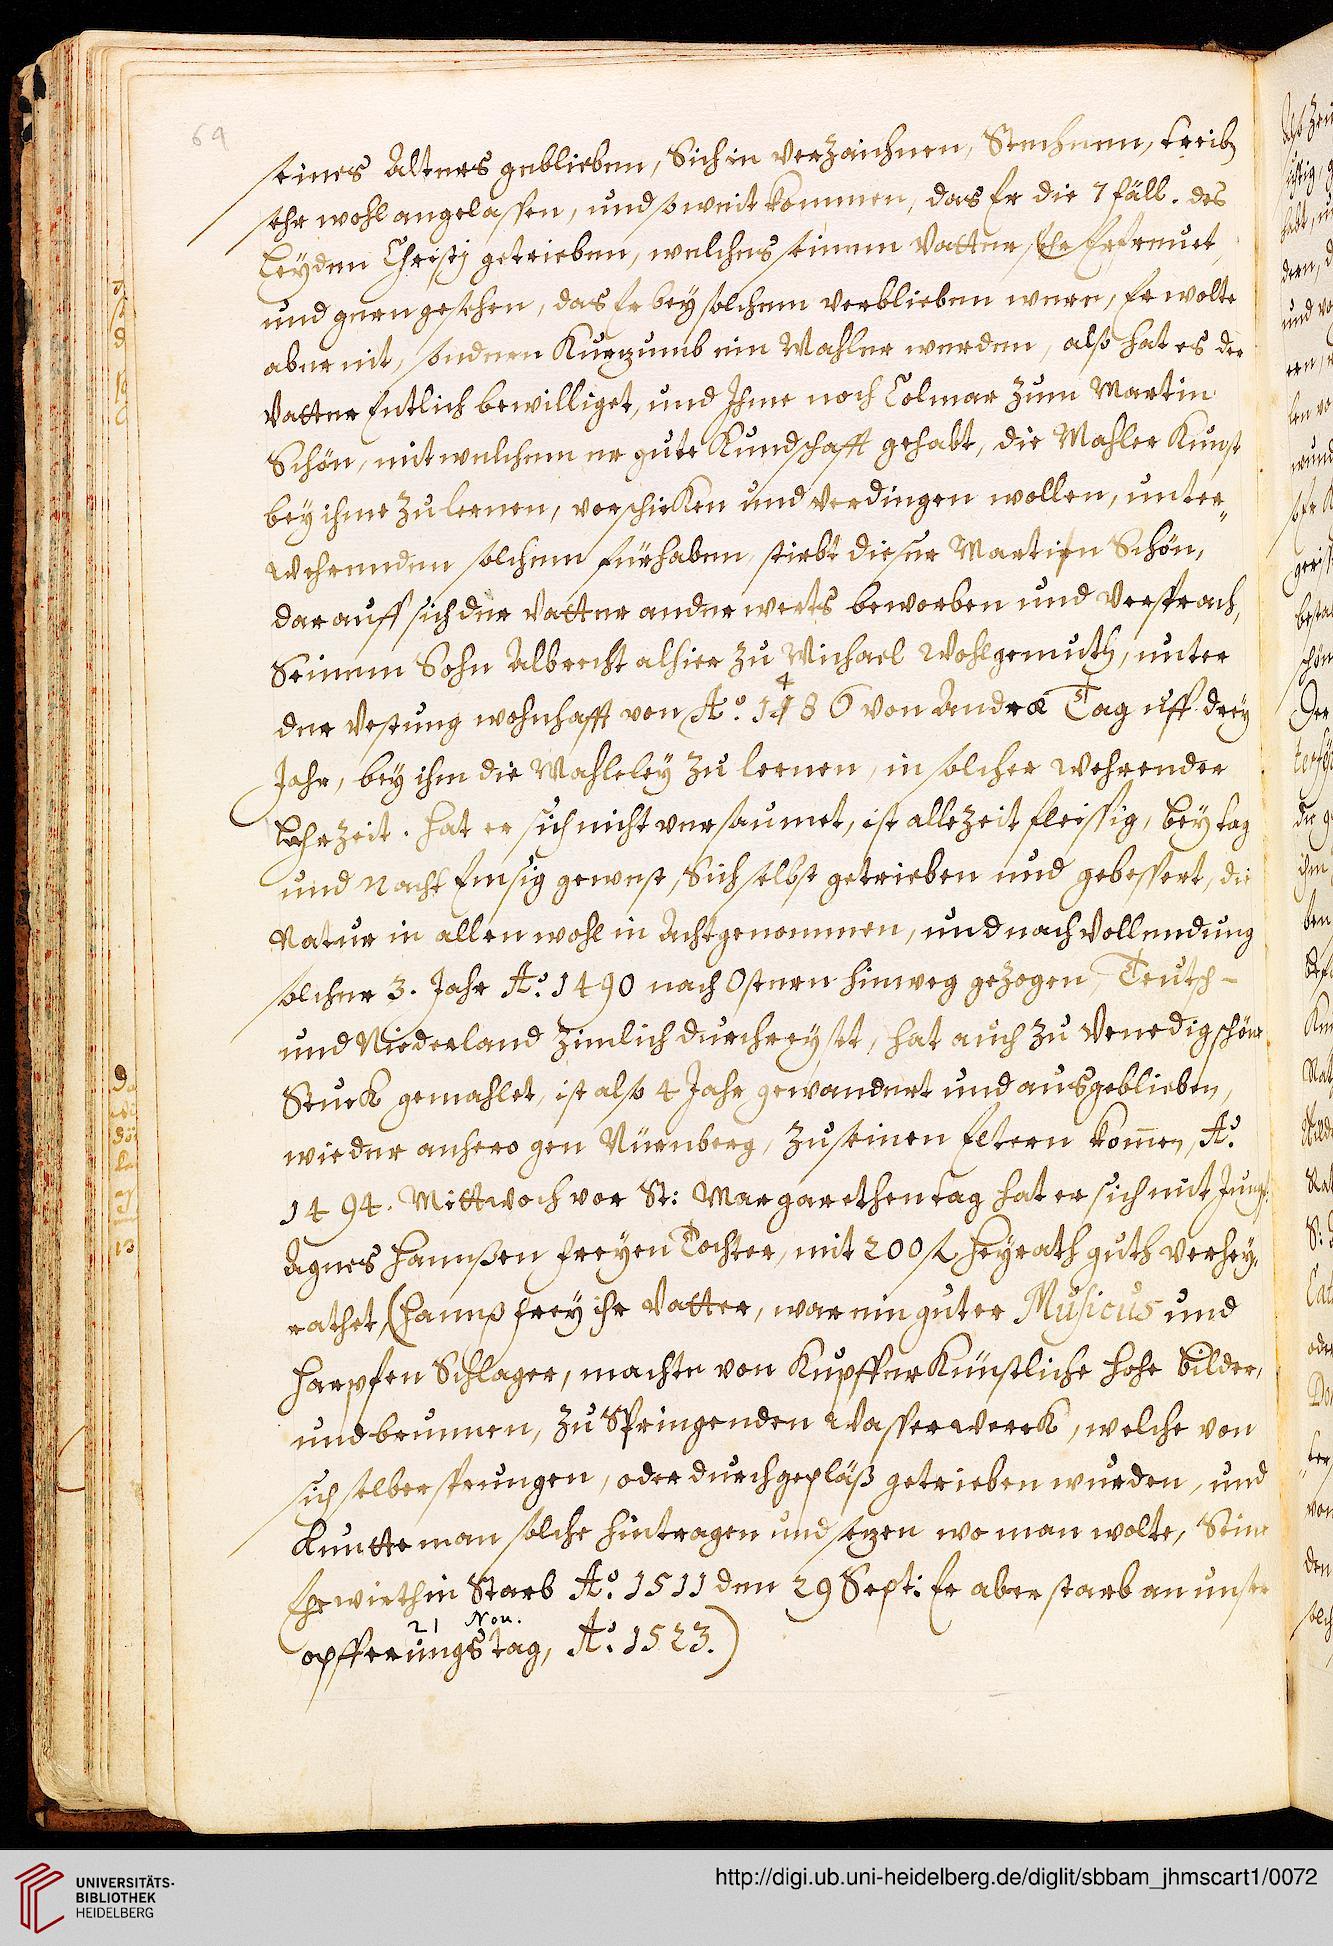 64
seines Alters geblieben, Sich in verzaichnen, Stechenen, treib
sehr wohl angelassen, und so weit kommen, das Er die 7 fäll. des
Leyden Christj getrieben, welches seinem Vatter sehr Erfreuet
und gern gesehen, das Er bey solchem verblieben were, Er wolte
aber nit, sondern Kurzumb ein Mahler werden, also hat es der
Vatter Entlich bewilliget, und Ihme noch Colmar zum Martin
Schön, mit welchem er gute Kundschafft gehabt, die Mahler Kunst
bey ihme zu lernen, verschicken und verdingen wollen, unter
wehrenden solchem fürhaben, stirbt dieser Martin Schön,
darauff sich der Vatter anderwerts beworben und Versprach,
Seinem Sohn Albrecht alhier zu Michael Wohlgemuth, unter
der Vestung wohnhafft von Aº. 1486 von Andræ Tag uff drey
Jahr, bey ihm die Mahleley zu lernen, in solcher wehrender
Lehrzeit. hat er sich nicht versaumet, ist allezeit fleissig, bey tag
und Nacht Emsig gewest, Sich selbst getrieben und gebessert, die
Natur in allen wohl in Acht genommen, und nach Vollendung
solcher 3. Jahr Aº. 1490 nach Ostern hinweg gezogen, Teutsch-
und Niederland zimlich durchreyset, hat auch zu Venedig schöne
Stuck gemahlet, ist also 4 Jahr gewandert und ausgeblieben,
wieder anhero gen Nürnberg, zu seinen Eltern kom̅en, Aº.
1494. Mittwoch vor St: Margarethen tag hat er sich mit Jungf:
Agnes Hannßen Freyen Tochter, mit 200 fl. Heyrath guth verhey,
rathet, (Hannß Frey ihr Vatter, war ein guter Musicus und
Harpfen Schlager, machte von Kupffer Künstliche hohe Bilder,
und brunnen, zu Springenden Wasserwerck, welche von
sich selber sprungen, oder durch gepläß getrieben wurden, und
Kuntte man solche hintragen und setzen wo man wolte, Seine
Ehewirthin Starb Aº. 1511 den 29 Sept: Er aber starb an unser
21 Nov.
opfferungs tag, Aº. 1523.)
UNIVERSITÄTS-
BIBLIOTHEK
HEIDELBERG
http://digi.ub.uni-heidelberg.de/diglit/sbbam_jhmscart1/0072